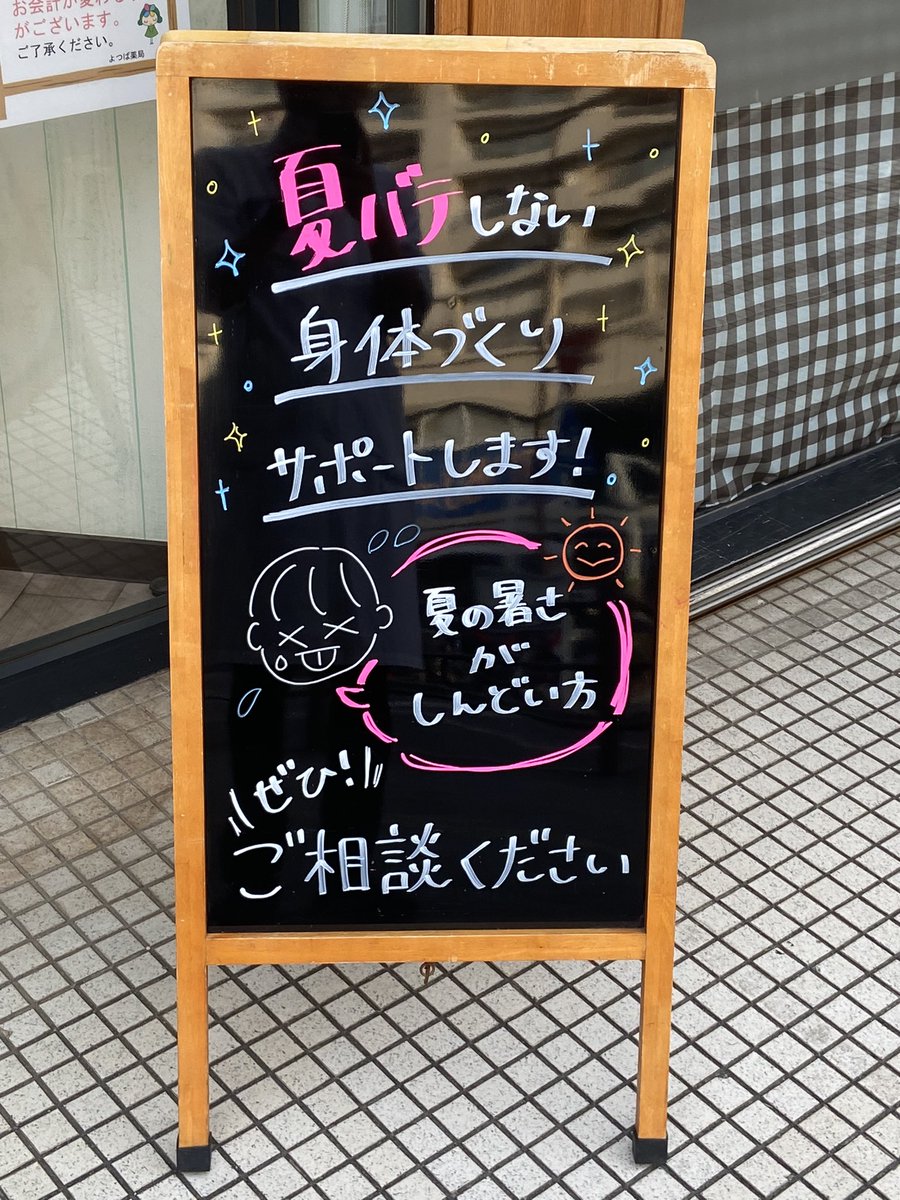 がございます。
ご了承ください。
よつば薬局
夏バテしない
身体づくり
サポートします!
夏の暑さ
が
しんどい方
ぜひ!
ご相談ください